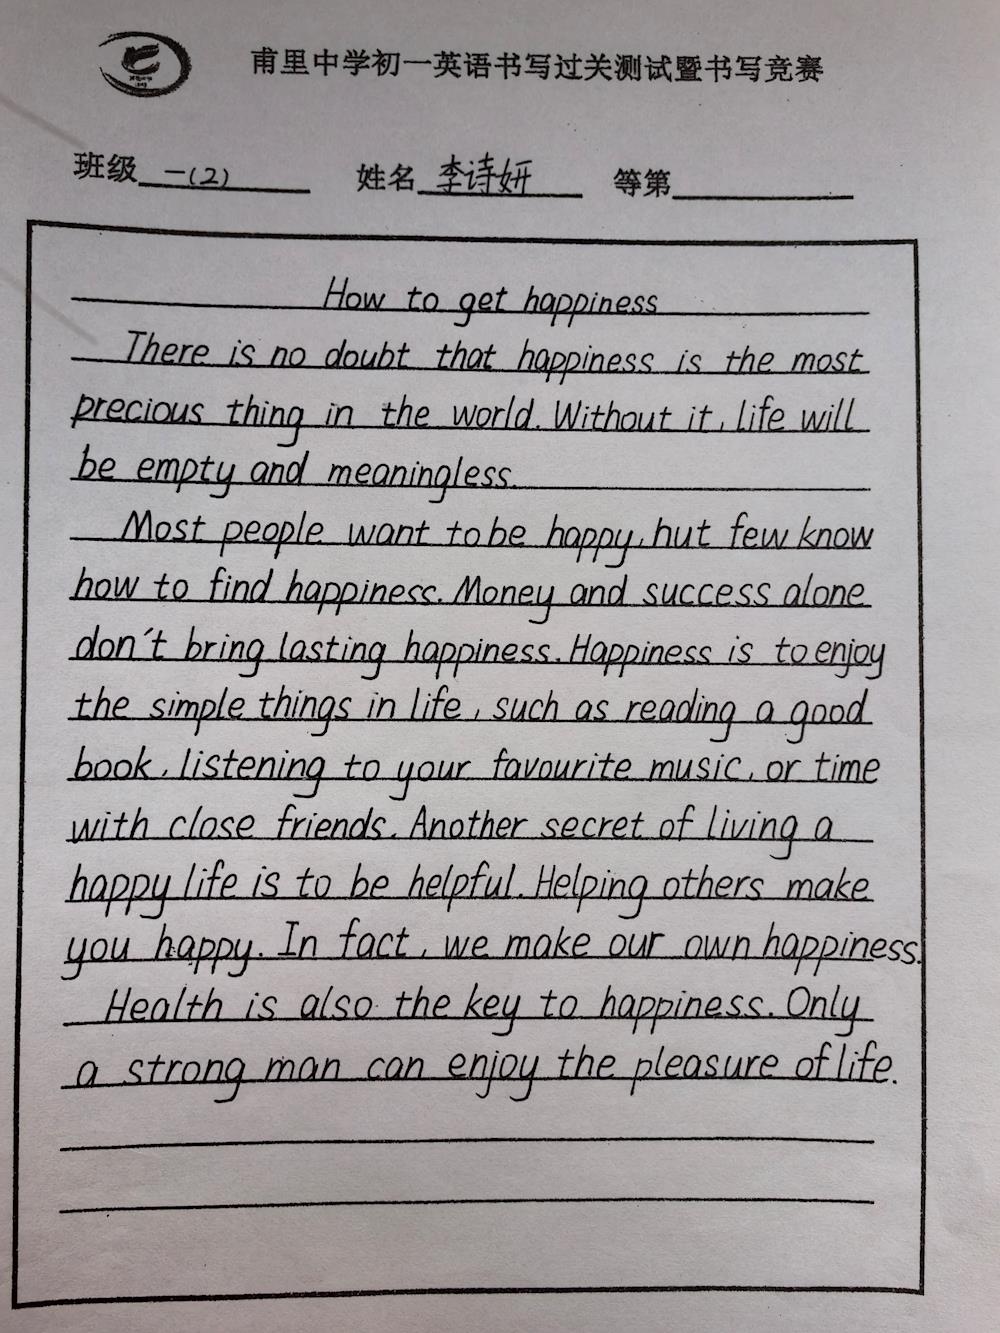 甫里中学初一英语书写过关测试暨书写竞赛
班级 一(2) 姓名 李诗妍 等第
How to get happiness
There is no doubt that happiness is the most
precious thing in the world. Without it, life will
be empty and meaningless.
Most people want to be happy, but few know
how to find happiness. Money and success alone
don't bring lasting happiness. Happiness is to enjoy
the simple things in life, such as reading a good
book, listening to your favourite music, or time
with close friends. Another secret of living a
happy life is to be helpful. Helping others make
you happy. In fact, we make our own happiness.
Health is also the key to happiness. Only
a strong man can enjoy the pleasure of life.